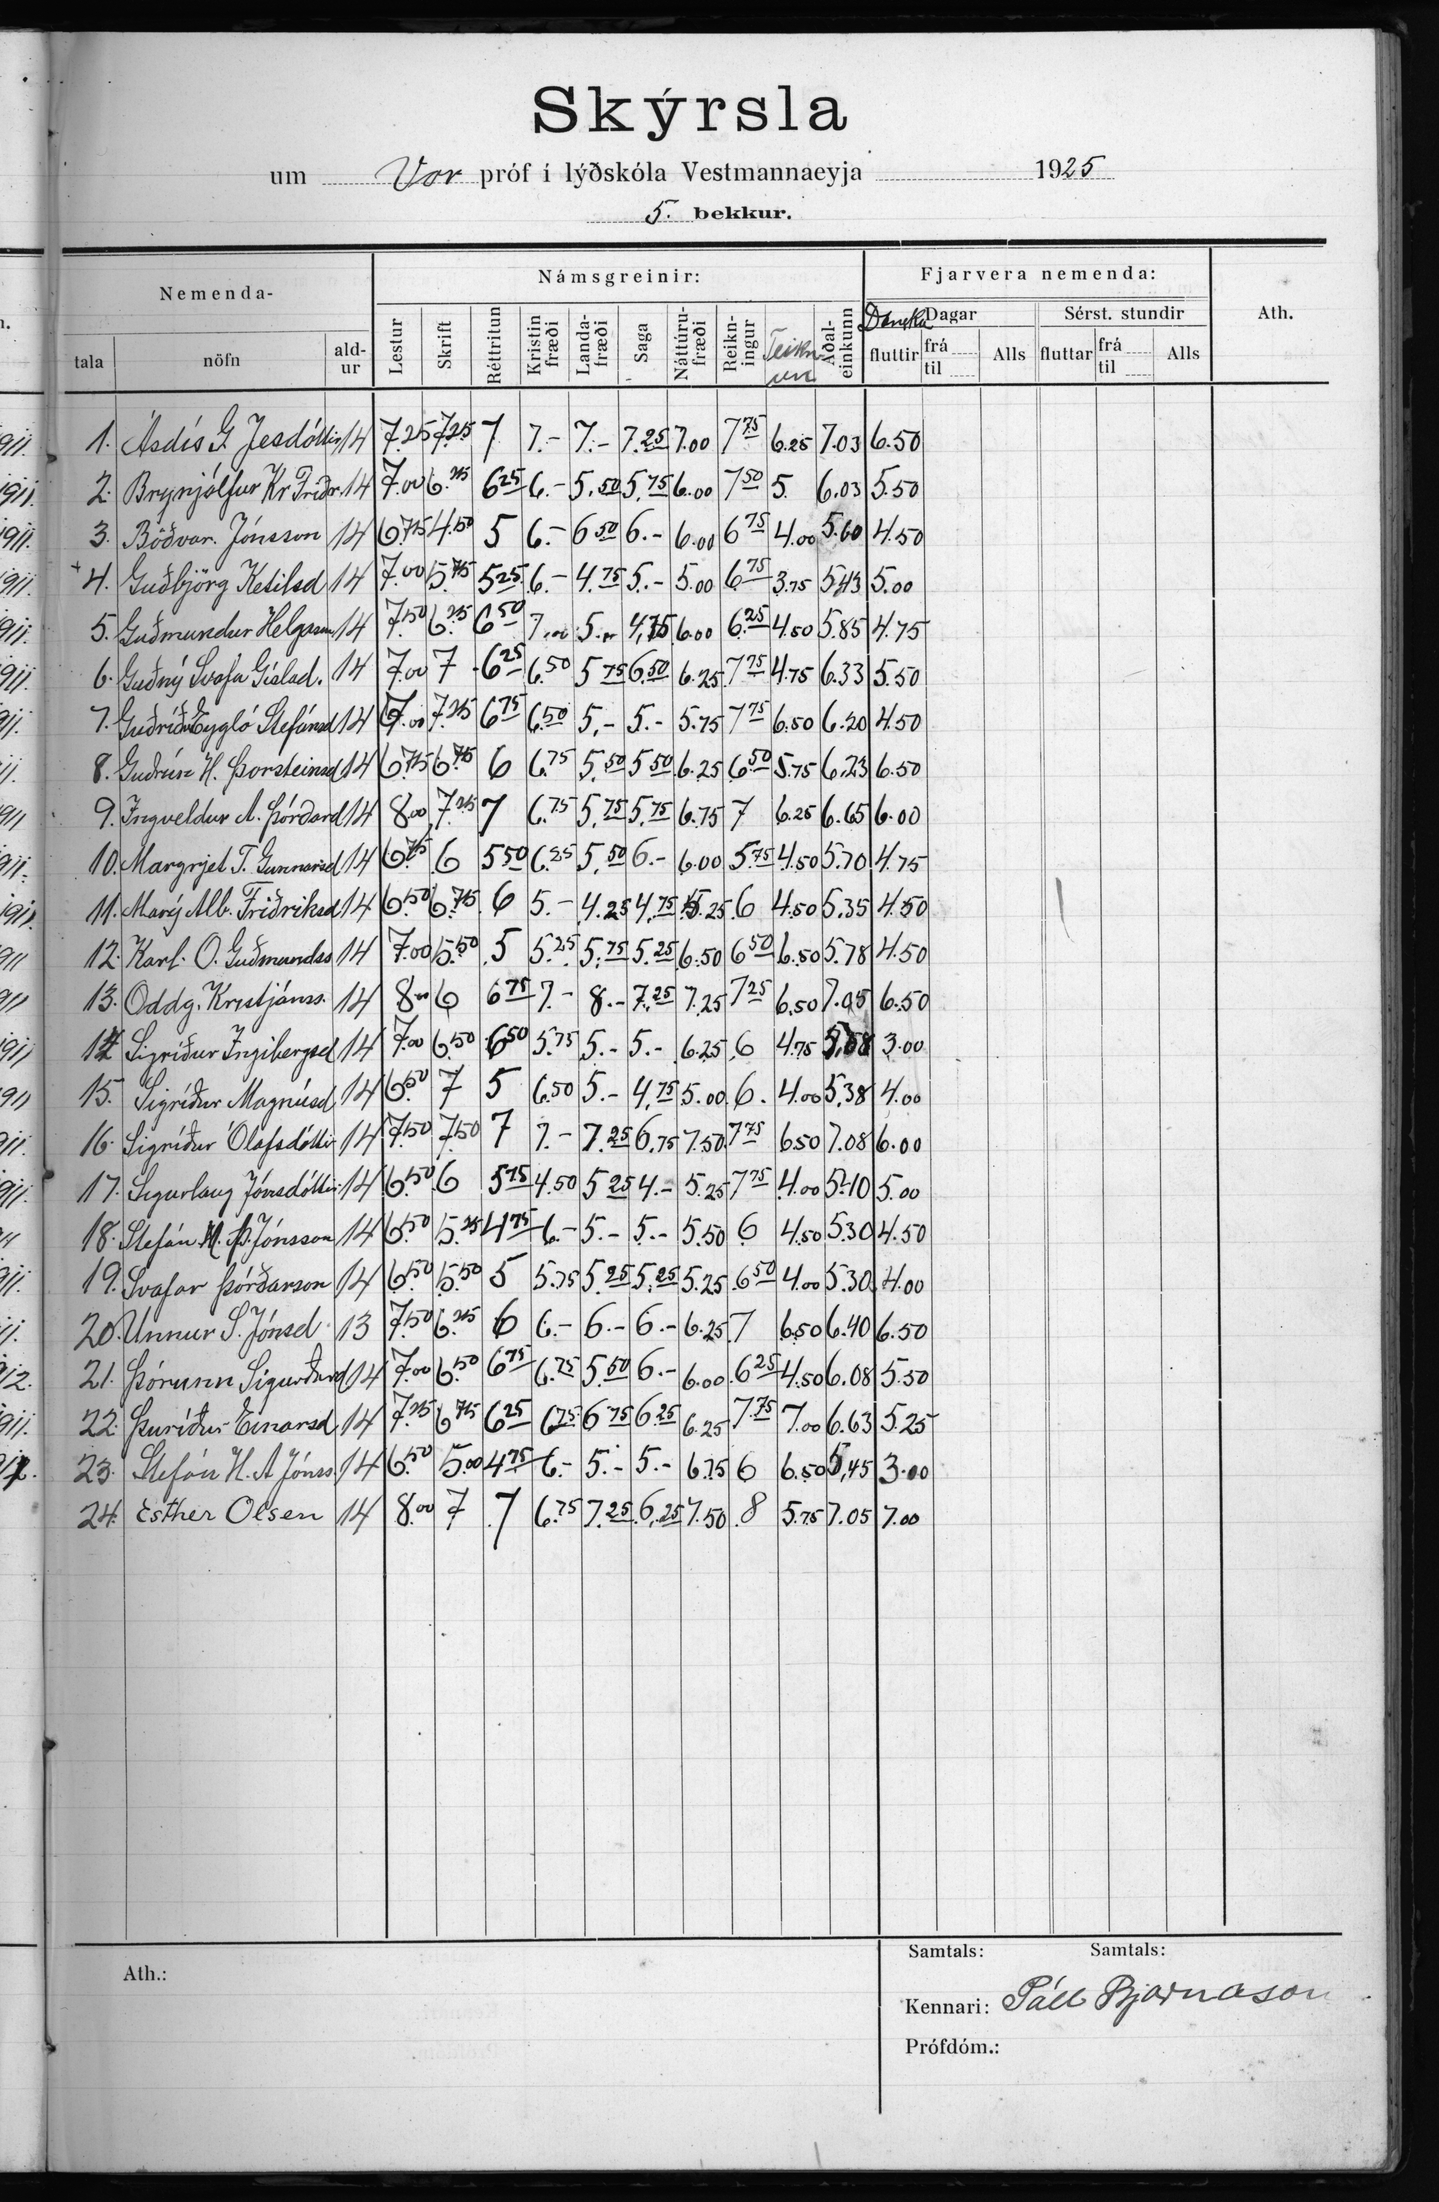 Skýrsla
um Vor próf í lýðskóla Vestmannaeyja 1925
5. bekkur.
Nemenda- Námsgreinir: Fjarvera nemenda: Ath.
tala nöfn ald-ur Lestur Skrift Réttritun Kristin fræði Landa-fræði Saga Náttúru-fræði Reikn-ingur Teikn un Aðal-einkunn Danska Dagar fluttir frá til Alls Sérst. stundir fluttar frá til Alls
1. Ásdís G. Jesdóttir 14 7.25 7.25 7 7.- 7.- 7.25 7.00 7 75 6.25 7.03 6.50
2. Brynjólfur Kr Friðr 14 7.00 6.25 6 25 6.- 5.50 5,75 6.00 7 50 5. 6.03 5.50
3. Böðvar Jónsson 14 6.75 4.50 5 6.- 6 50 6.- 6.00 6 75 4.00 5.60 4.50
4. Guðbjörg Ketilsd 14 7.00 5.75 5 25 6.- 4.75 5.- 5.00 6 75 3.75 5,43 5.00
5. Guðmundur Helgason 14 7.50 6.25 6 50 7.00 5.- 4,75 6.00 6.25 4.50 5.85 4.75
6. Guðný Svafa Gíslad. 14 7.00 7 6 25 6.50 5 75 6,50 6.25 7 75 4.75 6.33 5.50
7. Guðríður Eygló Stefánsd 14 7.00 7.25 6 75 6.50 5.- 5.- 5.75 7 75 6.50 6.20 4.50
8. Guðrún H. Þorsteinsd 14 6.75 6.75 6 6.75 5.50 5 50 6.25 6.50 5.75 6,23 6.50
9. Ingveldur A. Þórðard 14 8.00 7.25 7 6.75 5,75 5,75 6.75 7 6.25 6.65 6.00
10. Margrjet T. Gunnarsd 14 6.75 6 5 50 6.25 5,50 6.- 6.00 5.75 4.50 5.70 4.75
11. Marý Alb. Friðriksd 14 6.50 6.75 6 5.- 4.25 4,75 5.25 6 4.50 5.35 4.50
12. Karl. O. Guðmundss 14 7.00 5.50 5 5.25 5,75 5.25 6.50 6 50 6.50 5.78 4.50
13. Oddg. Kristjánss. 14 8.00 6 6 75 7.- 8.- 7,25 7.25 7 25 6,50 7.05 6.50
14 Sigríður Ingibergsd 14 7.00 6.50 6 50 5.75 5.- 5.- 6.25 6 4.75 5,68 3.00
15. Sigríður Magnúsd 14 6.50 7 5 6.50 5.- 4,75 5.00 6. 4.00 5,38 4.00
16. Sigríður Ólafsdóttir 14 7.50 7.50 7 7.- 7.25 6,75 7.50 7 75 6.50 7.08 6.00
17. Sigurlaug Jónsdóttir 14 6.50 6 5 75 4.50 5 25 4.- 5.25 7 75 4.00 5.40 5.00
18. Stefán H. Þ. Jónsson 14 6.50 5.25 4 75 6.- 5.- 5.- 5.50 6 4.50 5.30 4.50
19. Svafar Þórðarson 14 6.50 5.50 5 5.75 5,25 5.25 5.25 6 50 4.00 5.30 4.00
20. Unnur S. Jónsd 13 7.50 6.25 6 6.- 6.- 6.- 6.25 7 6.50 6.40 6.50
21. Þórunn Sigurðard 14 7.00 6.50 6 75 6.75 5.50 6.- 6.00 6 25 4.50 6.08 5.50
22. Þuríður Einarsd 14 7.25 6 75 6 25 6 75 6 75 6 25 6.25 7.75 7.00 6.63 5.25
23. Stefán H. A Jónss. 14 6.50 5.00 4 75 6.- 5.- 5.- 6.75 6 6.50 5,45 3.00
24. Esther Olsen 14 8.00 7 7 6.75 7.25 6,25 7.50 8 5.75 7.05 7.00
Ath.: Samtals: Samtals:
Kennari: Páll Bjarnason
Prófdóm.: